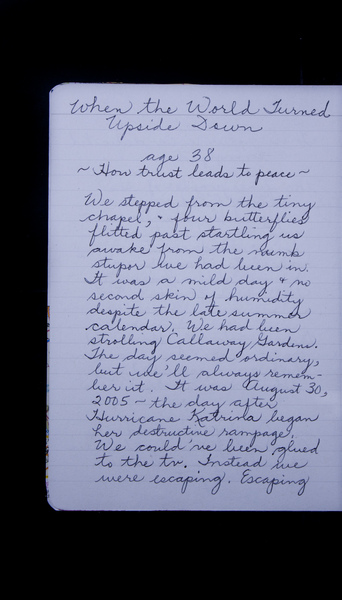 When the World Turned
Upside Down
age 38
~ How trust leads to peace ~
We stepped from the tiny
chapel, & four butterflies
flitted past startling us
awake from the numb
stupor we had been in.
It was a mild day & no
second skin of humidity
despite the late summer
calendar. We had been
strolling Callaway Gardens.
The day seemed ordinary,
but we'll always remem-
ber it. It was August 30,
2005 ~ the day after
Hurricane Katrina began
her destructive rampage.
We could've been glued
to the tv. Instead we
were escaping. Escaping